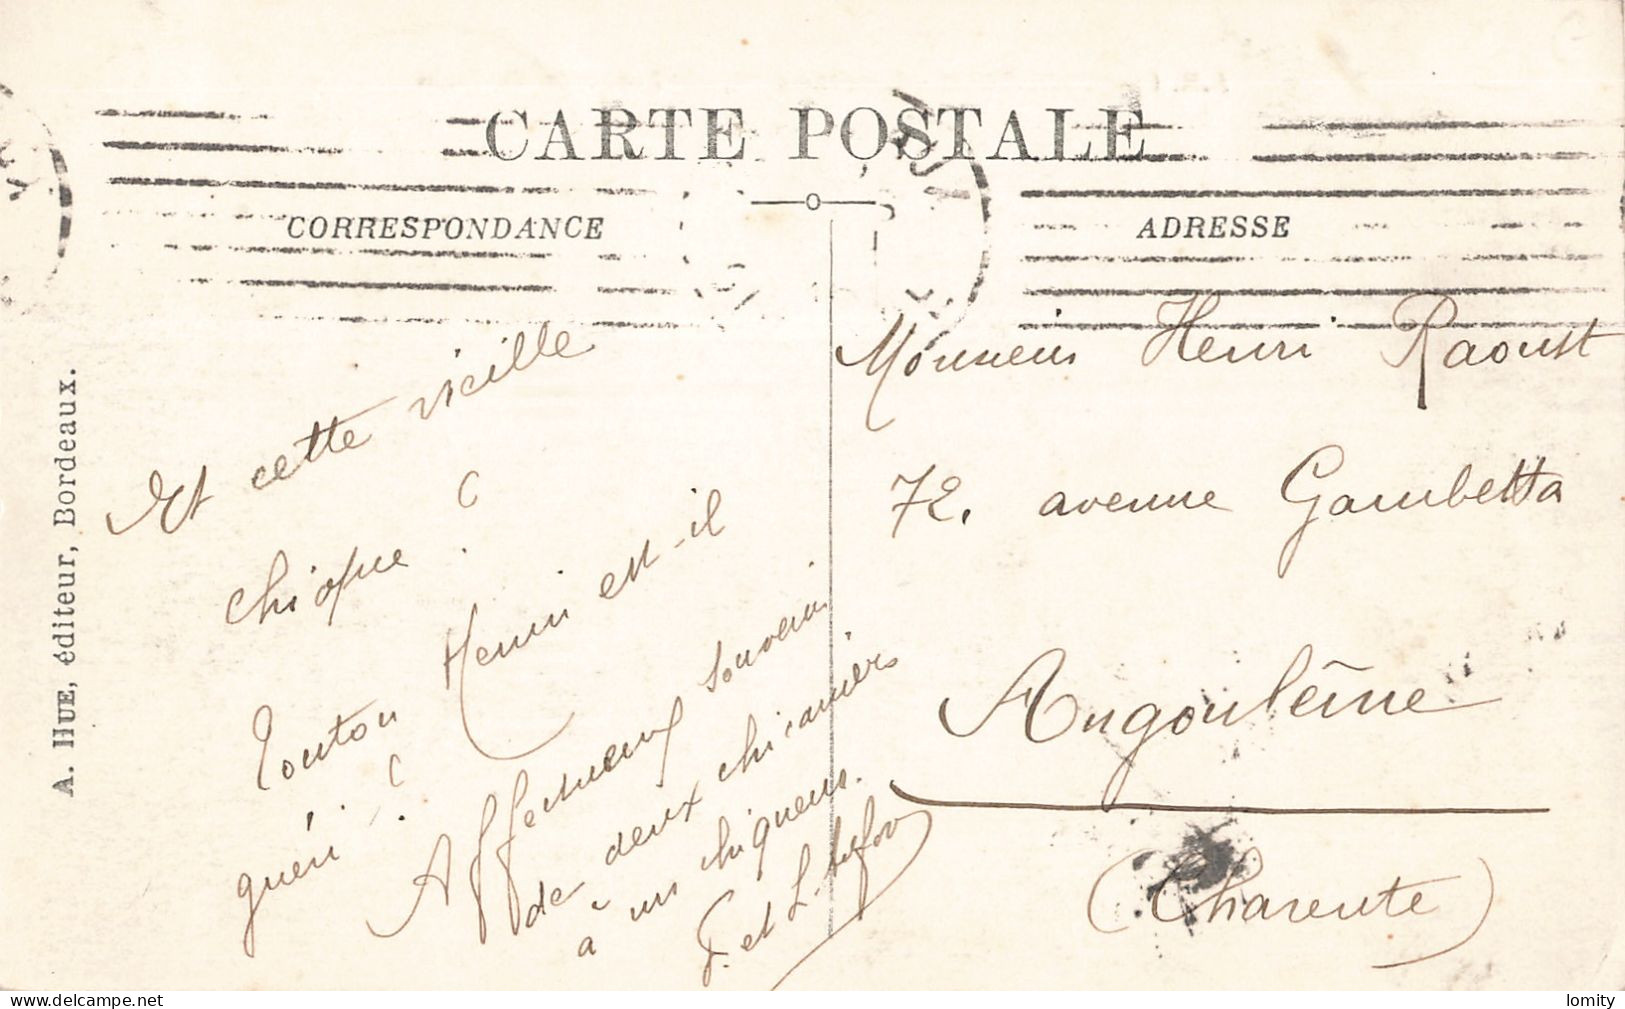 CARTE POSTALE
CORRESPONDANCE
ADRESSE
A. HUE, éditeur, Bordeaux.
Et cette vieille
chique ?
Tonton Henri est-il
guéri ?
Affectueux souvenir
de deux chicaniers
à un chiqueur.
et L.
Monsieur Henri Raoust
72, avenue Gambetta
Angoulême
(Charente)
lomity